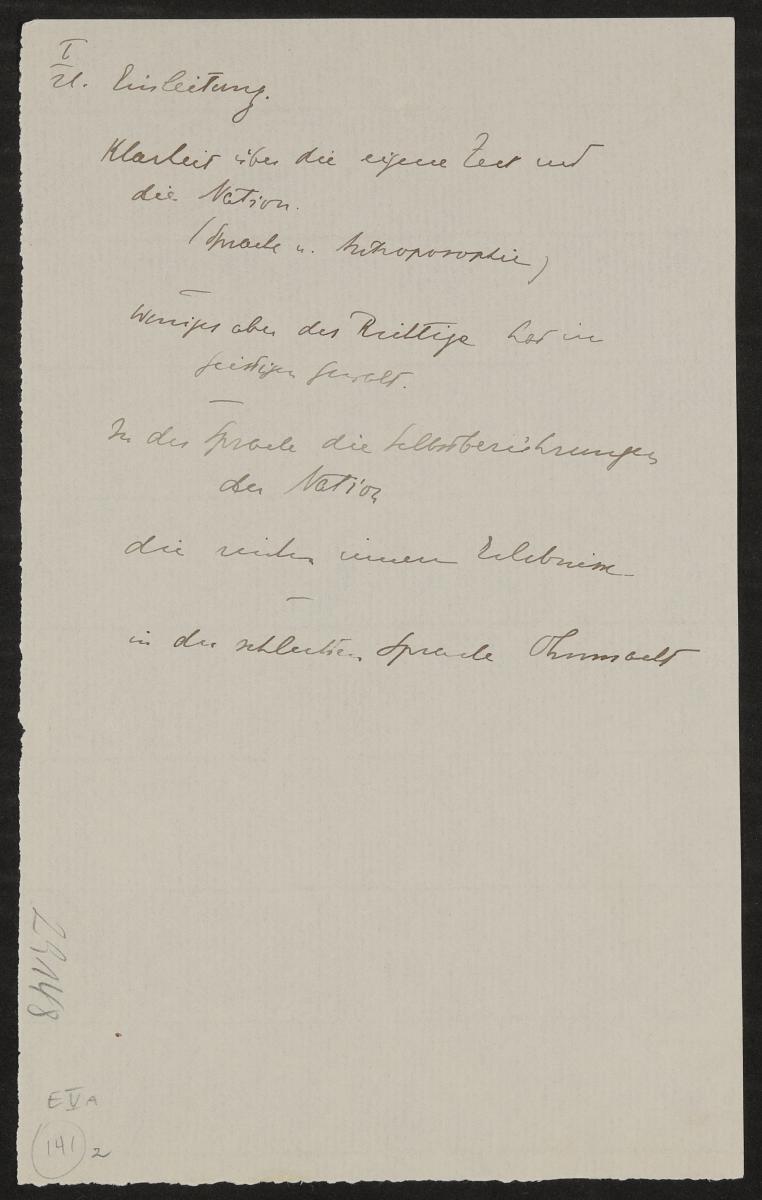 I
u. Einleitung.
Klarheit über die eigene Zeit und
die Nation.
(Sprache u. Anthroposophie)
Weniges aber des Richtige hat in
geistiger Gewalt.
In der Sprache die Selbstberührungen
der Nation
die reichen inneren Erlebnisse
in der schlechten Sprache Ohnmacht
23148
E V A
141 2